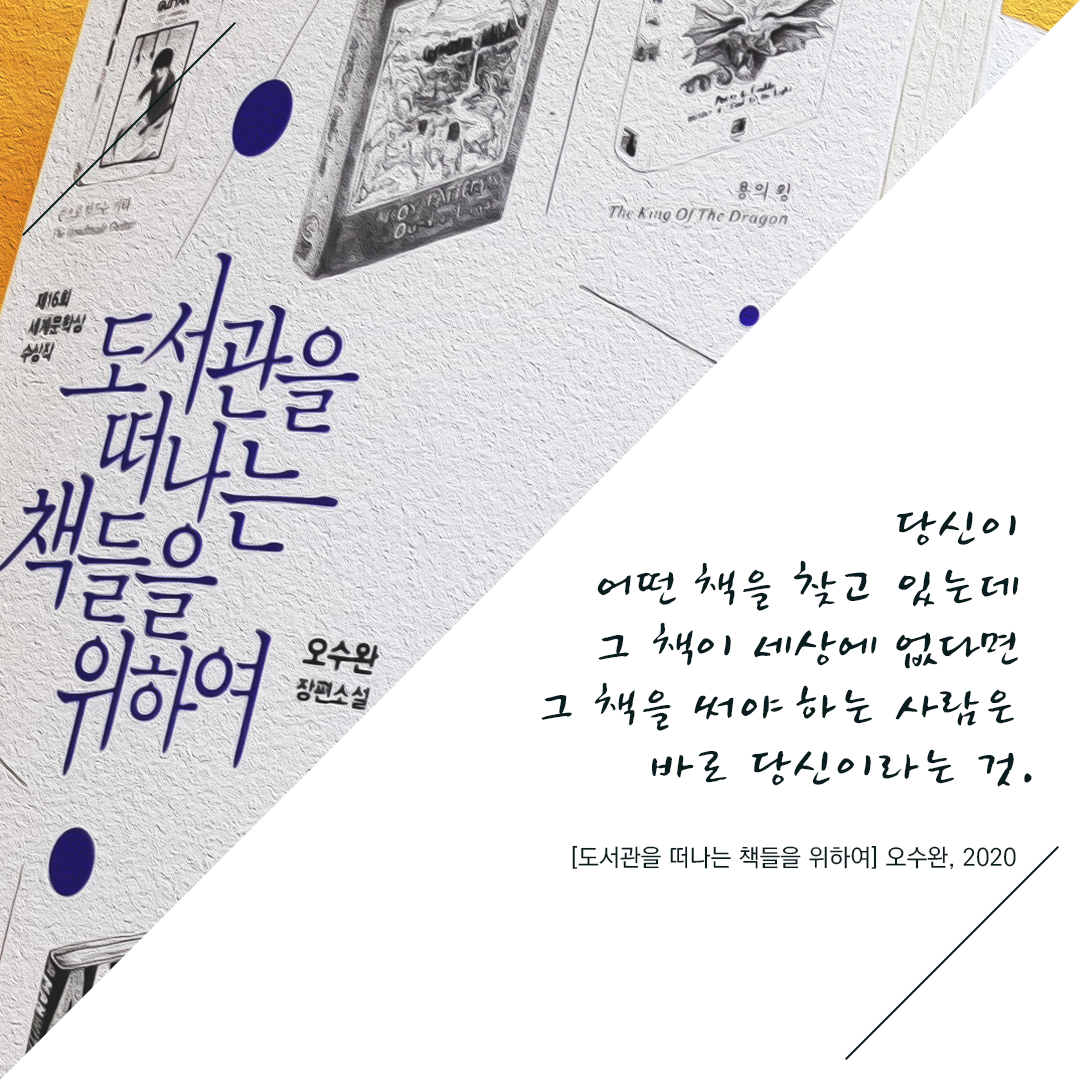 용의 왕
The King Of The Dragon
제16회
세계문학상
수상작
도서관을
떠나는
책들을
위하여
오수완
장편소설
당신이
어떤 책을 찾고 있는데
그 책이 세상에 없다면
그 책을 써야 하는 사람은
바로 당신이라는 것.
[도서관을 떠나는 책들을 위하여] 오수완, 2020